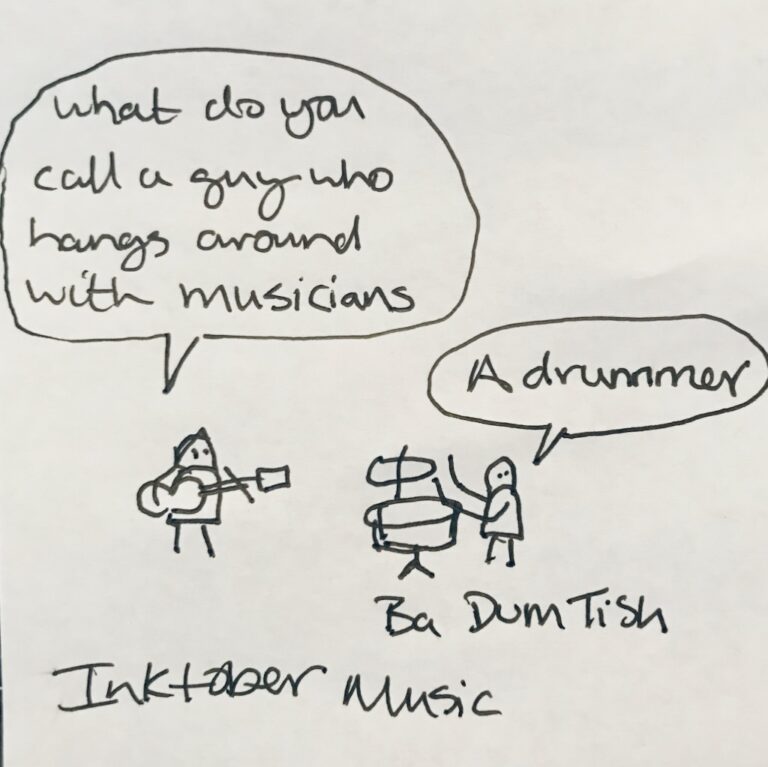 what do you
call a guy who
hangs around
with musicians
A drummer
Ba Dum Tish
Inktober Music